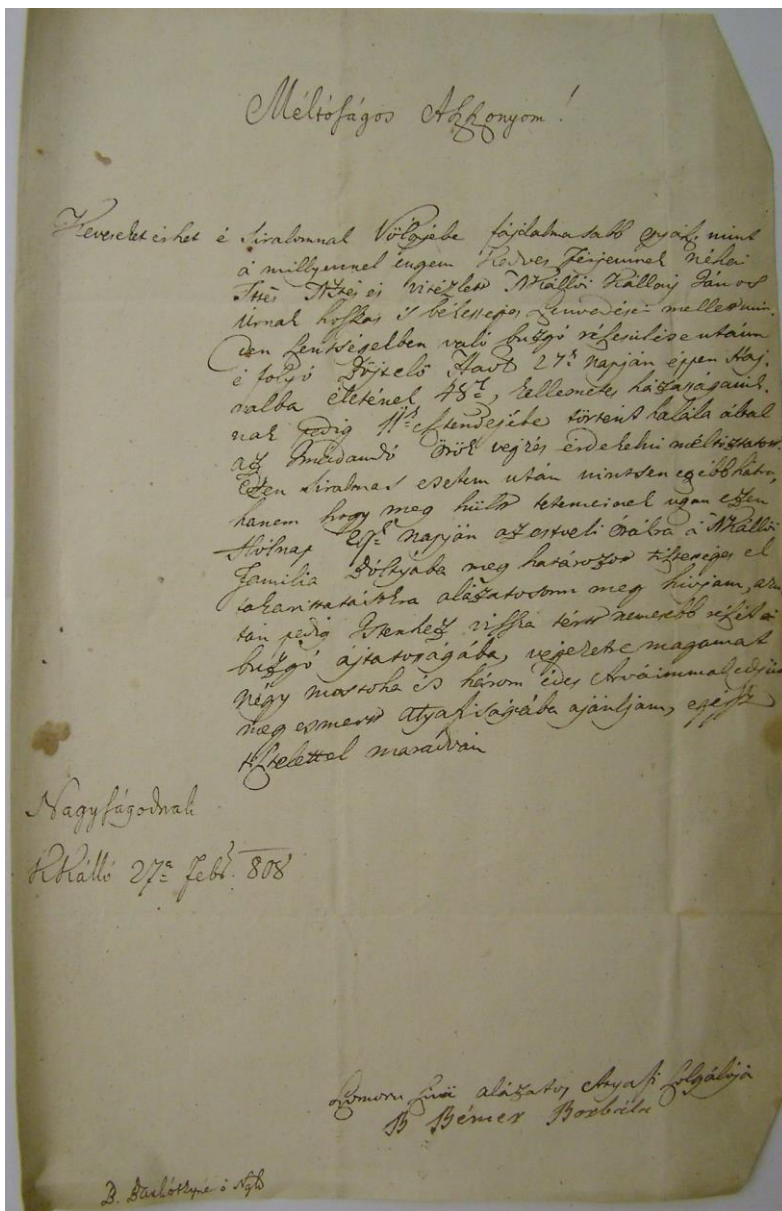 Méltóságos Aszszonyom!
Keveseket érhet é Siralomnak Völgyébe fájdalmasabb gyász, mint
a millyennel éngem Kedves Férjemnek néhai
Ttes Ntes és vitézlett NKállói Kállay János
Úrnak hoszszas és betegséges szenvedései mellett min-
den Szentségekben való buzgó részesülése utánn
é folyó Böjtelő Havb 27k napján éppen Haj-
nalba életének 48k, kellemetes házasságaink-
nak pedig 11k esztendejébe történt halála által
az Imádandó Örök végzés érdekelni méltóztatott.
Ezen Siralmas esetem után nintsen egyébb hátra,
hanem hogy meg hült tetemeinek ugyan ezen
Hólnap 29k napján az estveli órákra á NKállói
Familia Bóltjába meg határozott tisztességes el
takaríttatásokra alázatosonn meg hívjam, azu
tán pedig Istenhez viszsza tértt nemesebb részét á
buzgó ájtatosságába, végezetre magamat
négy mostoha és három édes Árváimmal edjütt
meg esmertt atyafiságába ajánljam, egész
tisztelettel maradván
Nagyságodnak
NKálló 27a Febr. 808
Szomorú szivü alázatos Atyafi Szolgálója
B Bémer Borbála